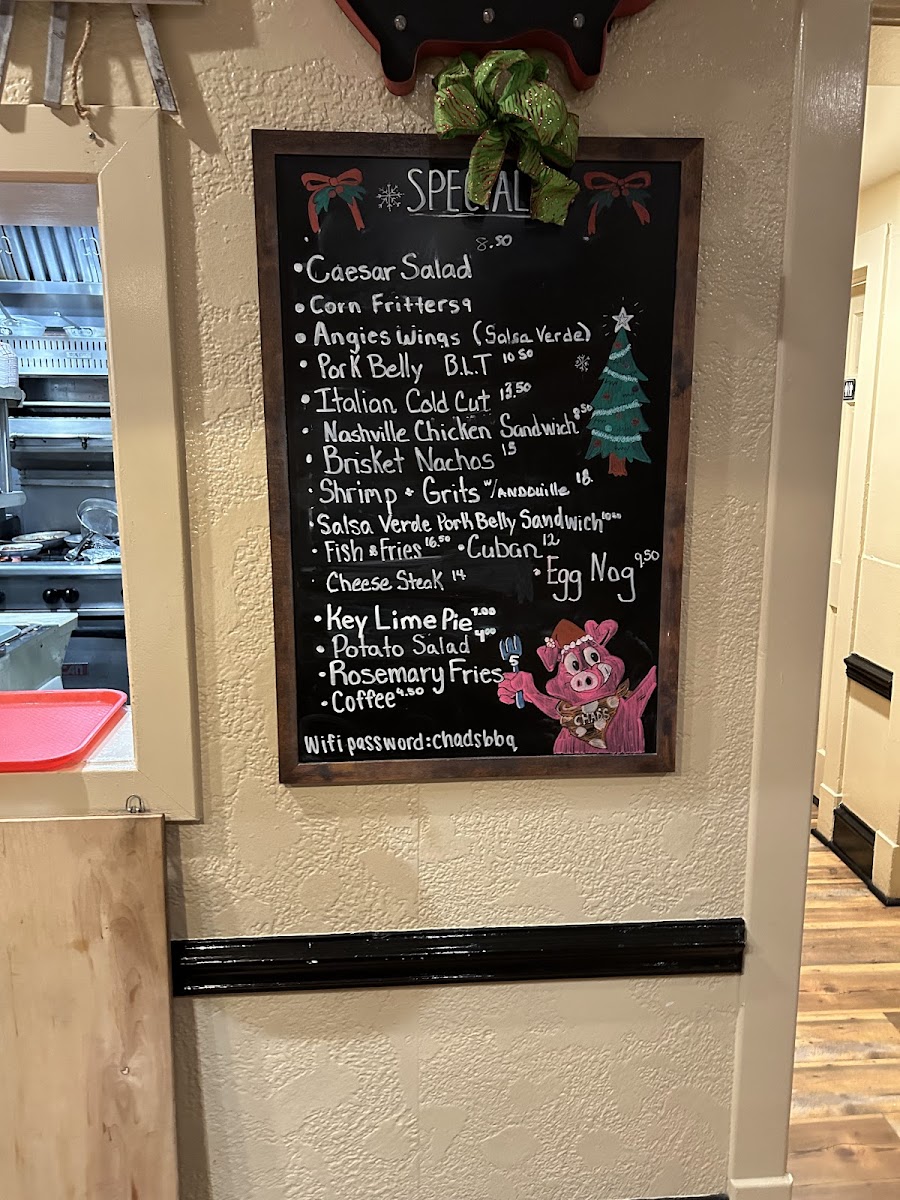 SPECIAL
8.50
• Caesar Salad
• Corn Fritters 9
• Angies Wings (Salsa Verde)
• Pork Belly B.L.T 10.50
• Italian Cold Cut 13.50
• Nashville Chicken Sandwich 8.50
• Brisket Nachos 15
• Shrimp + Grits w/ANDOUille 18.
• Salsa Verde Pork Belly Sandwich
• Fish & Fries 16.50 • Cuban 12
• Cheese Steak 14 • Egg Nog 9.50
• Key Lime Pie 7.00
• Potato Salad 4.00
• Rosemary Fries 5
• Coffee 4.50
CHAD'S
Wifi password:chadsbbq